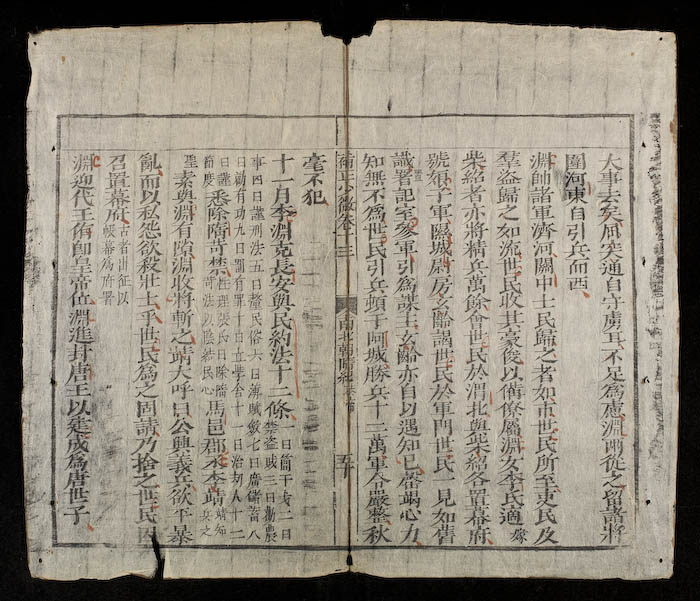 大事去矣屈突通自守虜耳不足爲慮淵兩從之留諸將
圍河東自引兵而西
淵帥諸軍濟河關中士民歸之者如市世民所至吏民及
羣盜歸之如流世民收其豪俊以備僚屬淵女李氏適嫁
柴紹者亦將精兵萬餘會世民於渭北與柴紹各置幕府
號娘子軍隰城尉房玄齡謁世民於軍門世民一見如舊
識署記室參軍引爲謀主玄齡亦自以遇知己罄竭心力
知無不爲世民引兵頓于阿城勝兵十三萬軍令嚴整秋
補正少微卷十三 南北朝隋紀 五十
毫不犯
十一月李淵克長安與民約法十二條一曰簡干戈二曰禁盜賊三曰勸農
事四曰謹刑法五曰厚民俗六曰薄賦斂七曰廣儲蓄八曰勸有功九曰罰有罪十曰立學舍十一曰治人十二
曰謹節度悉除隋苛禁張氏曰除隋苛法以陰結民心馬邑郡丞李靖靖知兵之聖
素與淵有隙淵收將斬之靖大呼曰公興義兵欲平暴
亂而以私怨欲殺壯士乎世民爲之固請乃捨之世民因
召置幕府古者出征以帳幕爲府署
淵迎代王侑卽皇帝位淵進封唐王以建成爲唐世子